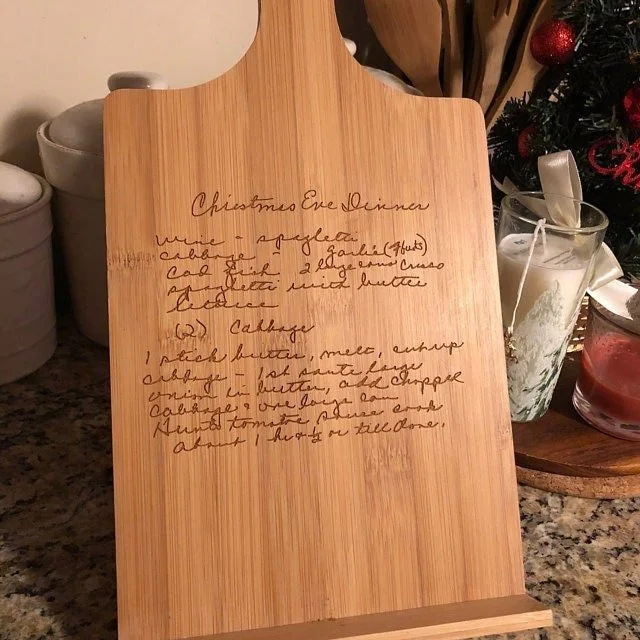 Christmas Eve Dinner
wine - spaghetti
cabbage - garlic (4 buds)
cod fish 2 large cans
spaghetti with butter
lettuce
(2) Cabbage
1 stick butter, melt, cut up
cabbage - 1st saute large
onion in butter, add chopped
cabbage & one large can
Hunts tomatoe sauce cook
about 1 hr or till done.